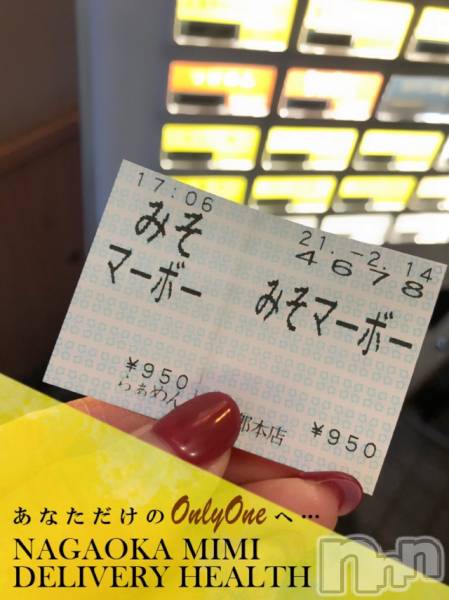 17:06
みそ
マーボー
¥950
らぁめん
21.-2.14
4678
みそマーボー
本店 ¥950
あなただけのOnlyOneへ…
NAGAOKA MIMI
DELIVERY HEALTH